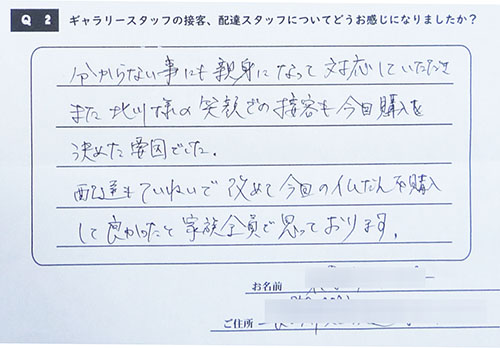 Q2 ギャラリースタッフの接客、配達スタッフについてどうお感じになりましたか？
分からない事にも親身になって対応していただき
また 北川様の笑顔での接客も今回購入を
決めた要因でした。
配達もていねいで改めて今回の仏だんを購入
して良かったと家族全員で思っております。
お名前
ご住所